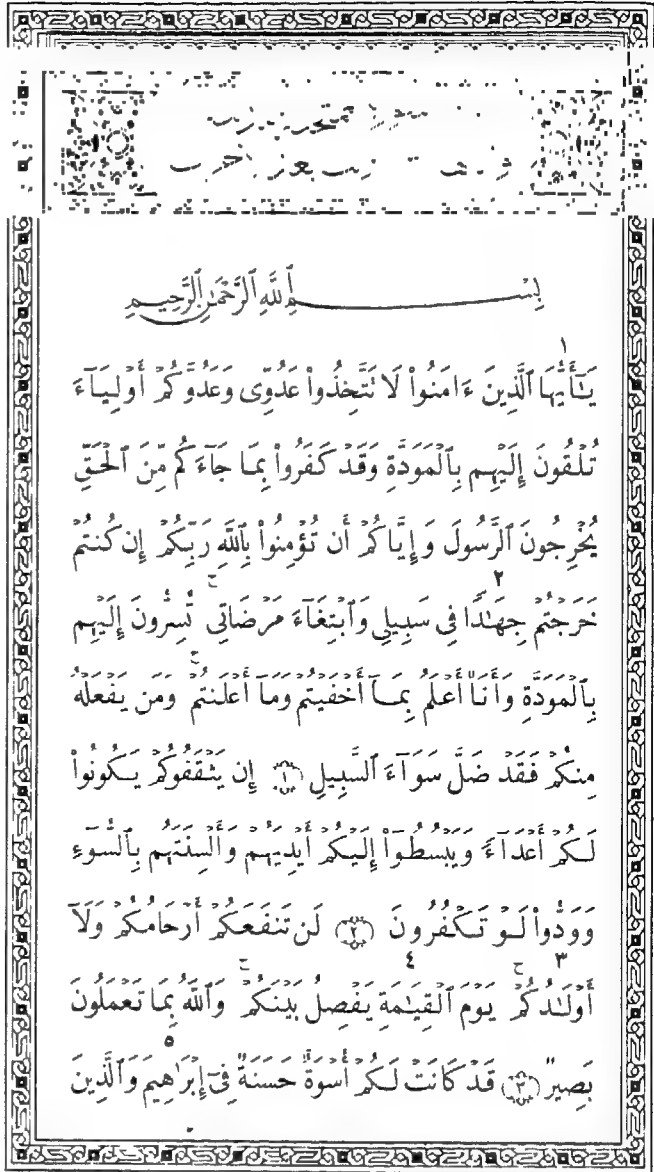 بِسْمِ ٱللَّهِ ٱلرَّحْمَٰنِ ٱلرَّحِيمِ
١
يَـٰٓأَيُّهَا ٱلَّذِينَ ءَامَنُواْ لَا تَتَّخِذُواْ عَدُوِّى وَعَدُوَّكُمْ أَوْلِيَآءَ
تُلْقُونَ إِلَيْهِم بِٱلْمَوَدَّةِ وَقَدْ كَفَرُواْ بِمَا جَآءَكُم مِّنَ ٱلْحَقِّ
يُخْرِجُونَ ٱلرَّسُولَ وَإِيَّاكُمْ أَن تُؤْمِنُواْ بِٱللَّهِ رَبِّكُمْ إِن كُنتُمْ
٢
خَرَجْتُمْ جِهَـٰدًا فِى سَبِيلِى وَٱبْتِغَآءَ مَرْضَاتِى ۚ تُسِرُّونَ إِلَيْهِم
بِٱلْمَوَدَّةِ وَأَنَا۠ أَعْلَمُ بِمَآ أَخْفَيْتُمْ وَمَآ أَعْلَنتُمْ ۚ وَمَن يَفْعَلْهُ
مِنكُمْ فَقَدْ ضَلَّ سَوَآءَ ٱلسَّبِيلِ ﴿١﴾ إِن يَثْقَفُوكُمْ يَكُونُواْ
لَكُمْ أَعْدَآءً وَيَبْسُطُوٓاْ إِلَيْكُمْ أَيْدِيَهُمْ وَأَلْسِنَتَهُم بِٱلسُّوٓءِ
وَوَدُّواْ لَوْ تَكْفُرُونَ ﴿٢﴾ لَن تَنفَعَكُمْ أَرْحَامُكُمْ وَلَآ
٣ ٤
أَوْلَـٰدُكُمْ ۚ يَوْمَ ٱلْقِيَـٰمَةِ يَفْصِلُ بَيْنَكُمْ ۚ وَٱللَّهُ بِمَا تَعْمَلُونَ
٥
بَصِيرٌ ﴿٣﴾ قَدْ كَانَتْ لَكُمْ أُسْوَةٌ حَسَنَةٌ فِىٓ إِبْرَٰهِيمَ وَٱلَّذِينَ